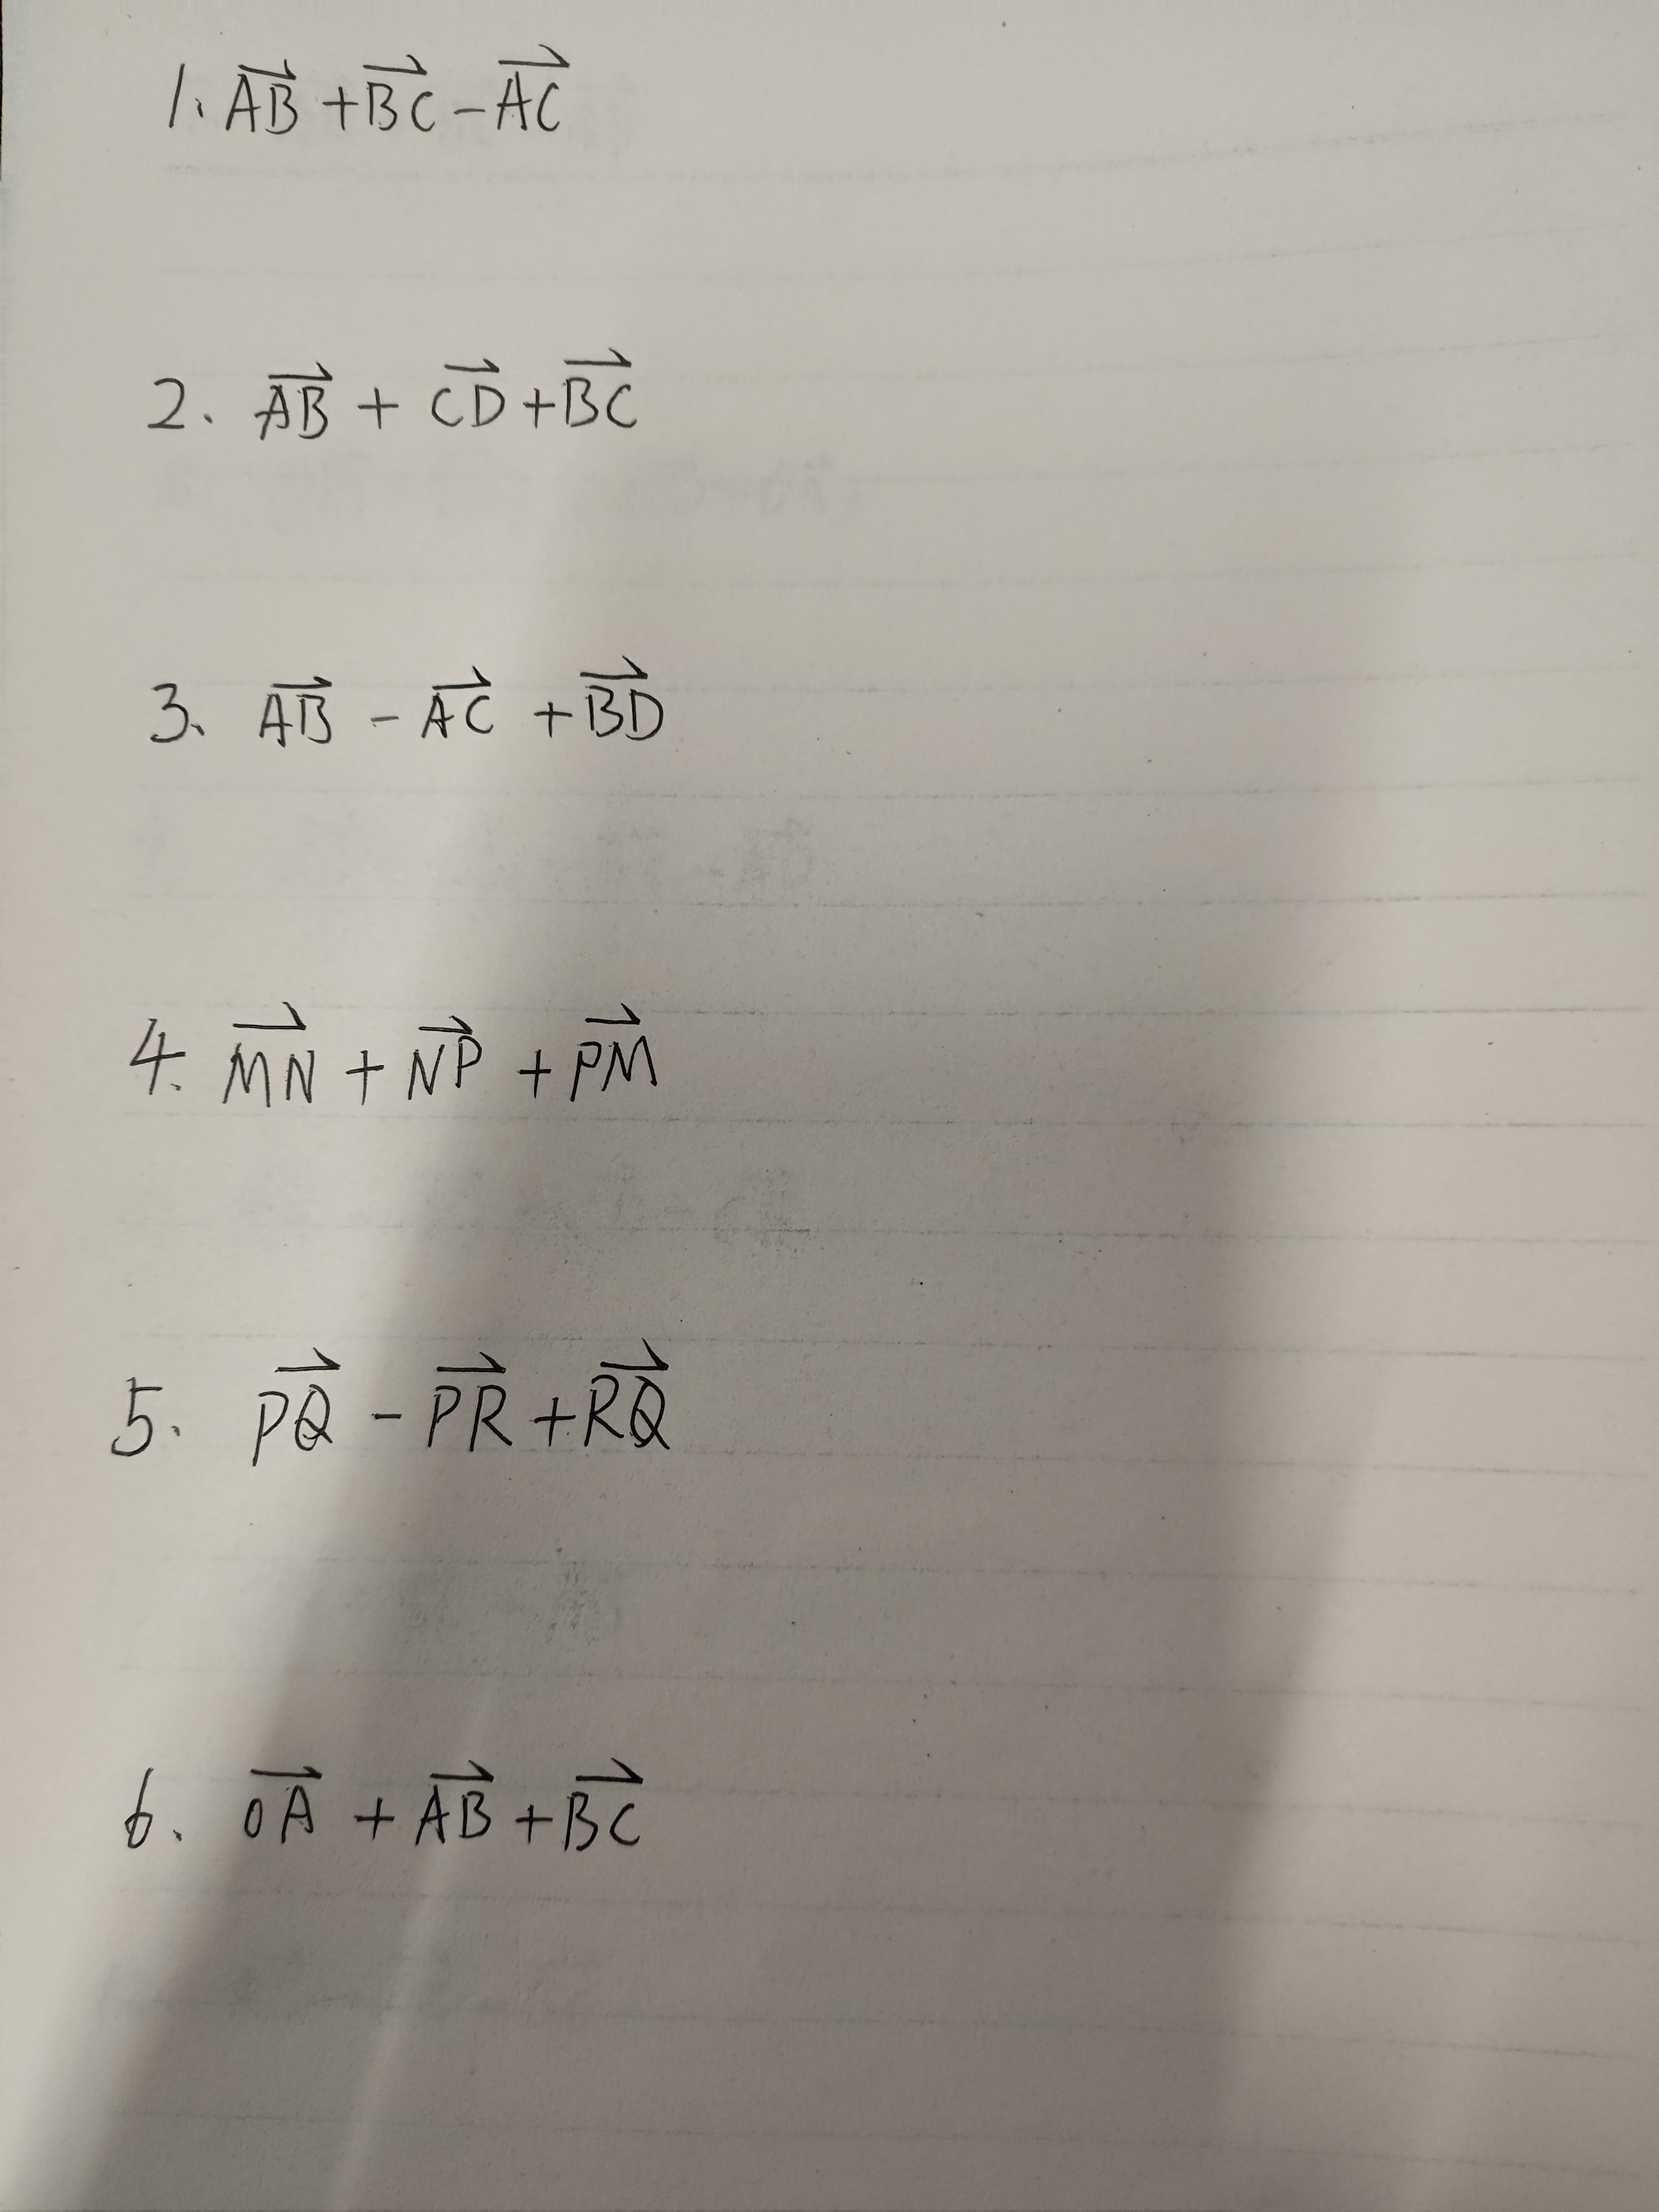 1. $\overrightarrow{AB}+\overrightarrow{BC}-\overrightarrow{AC}$
2. $\overrightarrow{AB}+\overrightarrow{CD}+\overrightarrow{BC}$
3. $\overrightarrow{AB}-\overrightarrow{AC}+\overrightarrow{BD}$
4. $\overrightarrow{MN}+\overrightarrow{NP}+\overrightarrow{PM}$
5. $\overrightarrow{PQ}-\overrightarrow{PR}+\overrightarrow{RQ}$
6. $\overrightarrow{OA}+\overrightarrow{AB}+\overrightarrow{BC}$